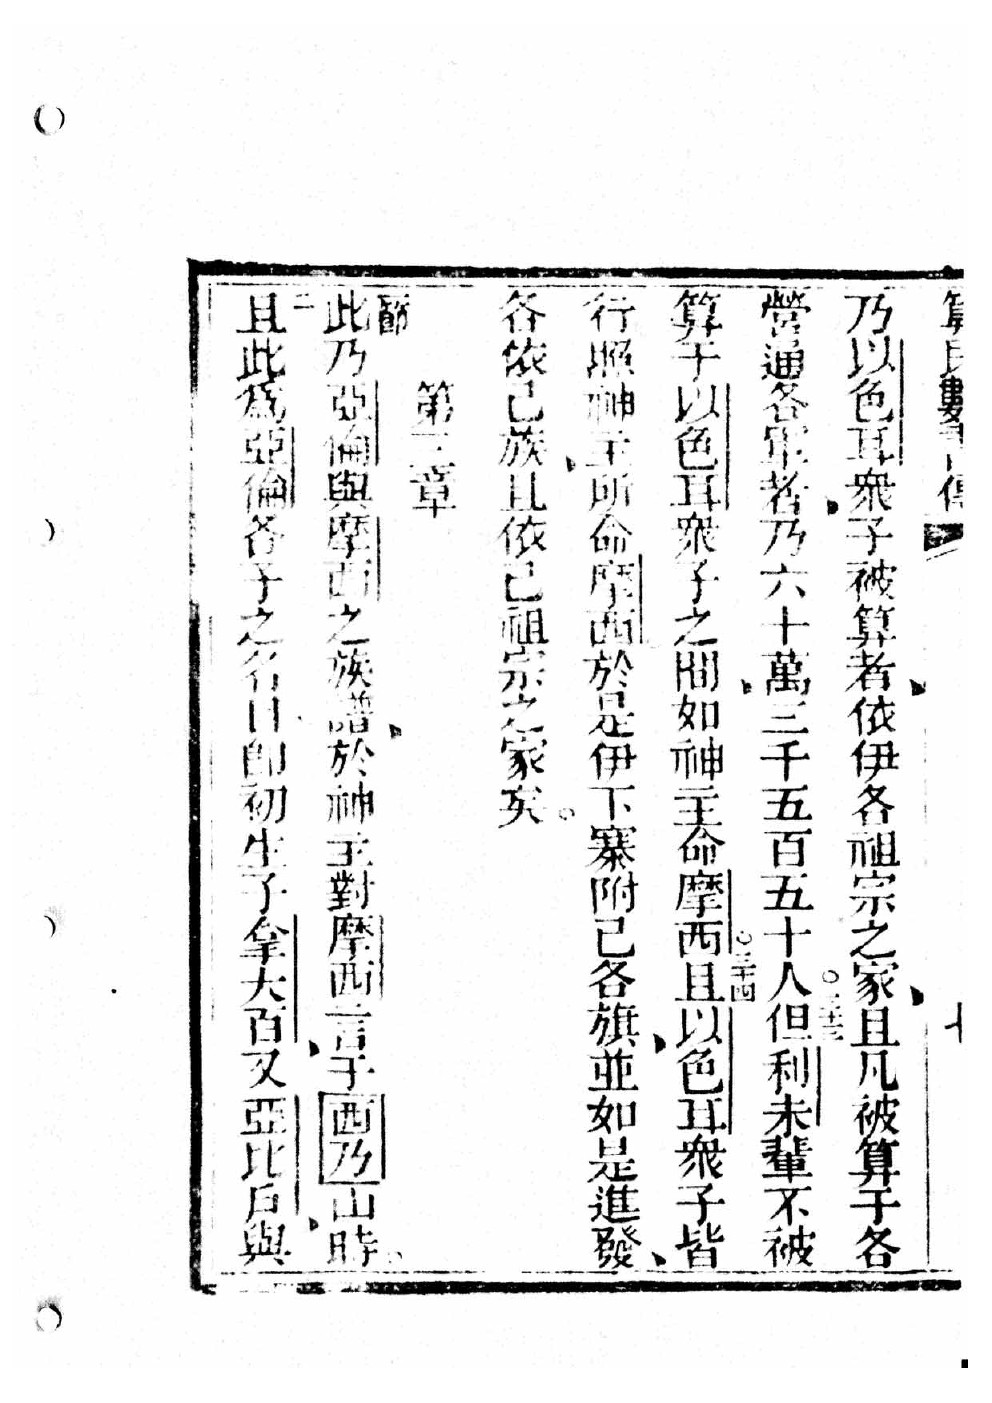 算民數書傳 七
乃以色耳衆子被算者依伊各祖宗之家且凡被算于各
營通各軍者乃六十萬三千五百五十人○三十三但利未輩不被
算于以色耳衆子之間如神主命摩西○三十四且以色耳衆子皆
行照神主所命摩西於是伊下寨附已各旗並如是進發
各依已族且依已祖宗之家矣○
第三章
節
此乃亞倫與摩西之族譜於神主對摩西言于西乃山時○
二
且此為亞倫各子之名曰卽初生子拿大百又亞比戶與